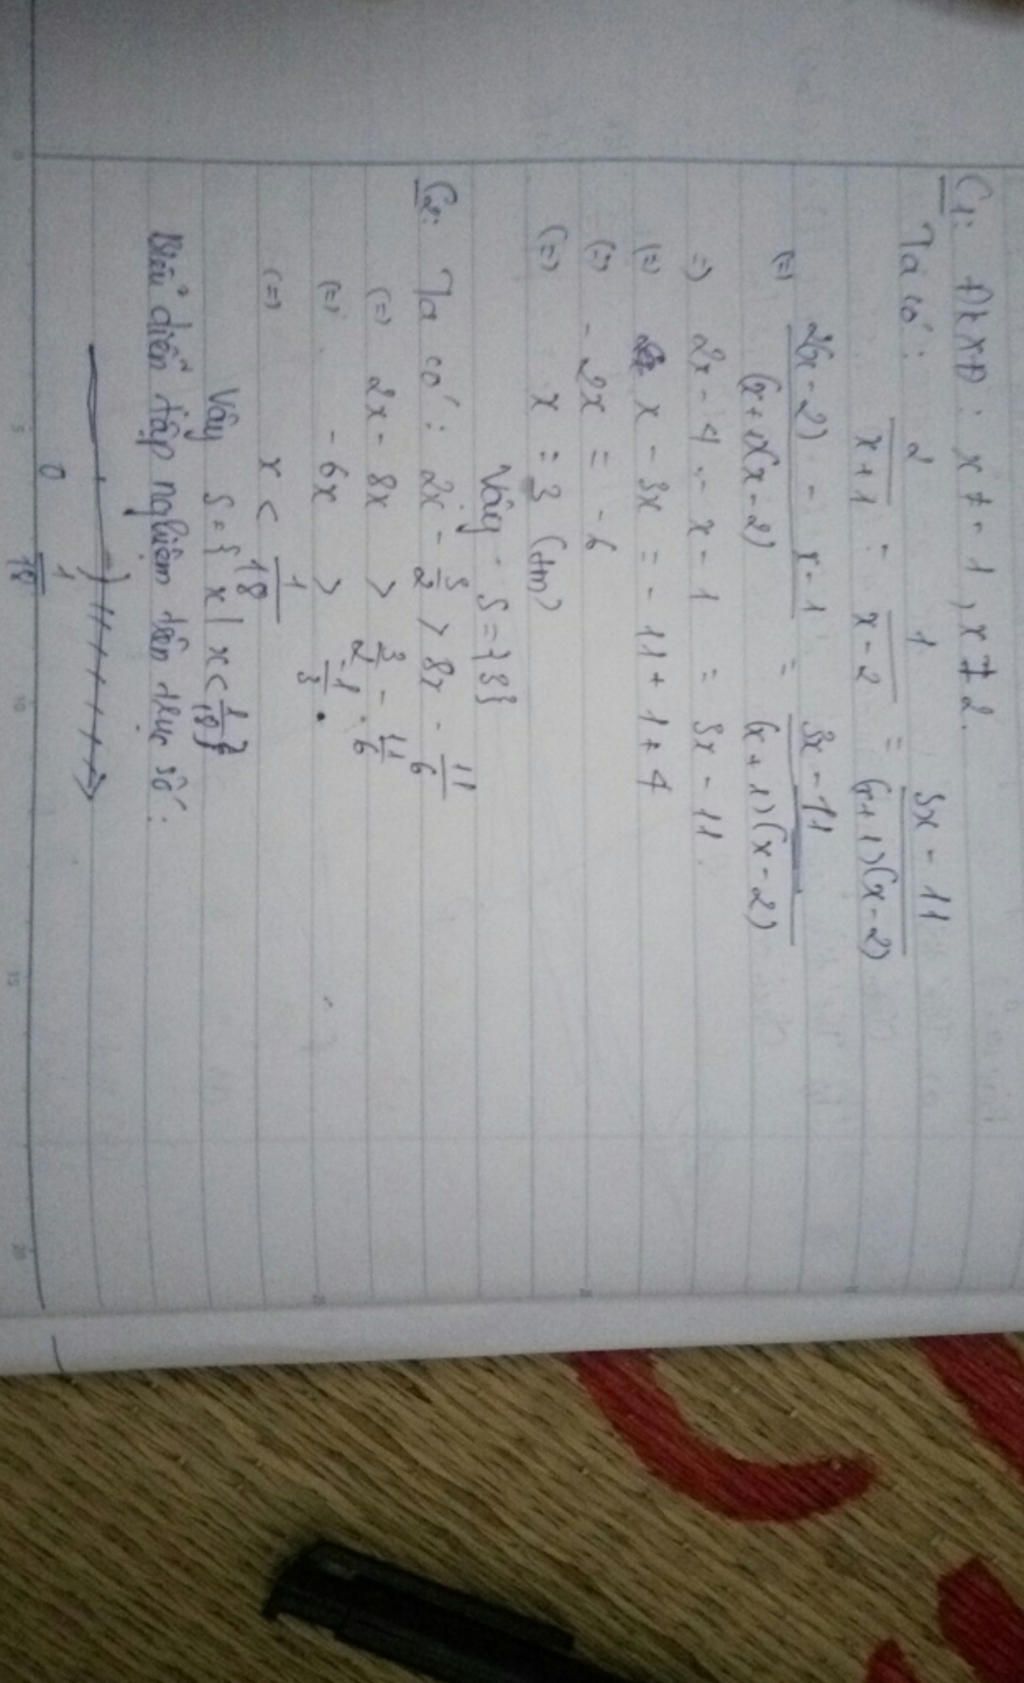 C1: ĐKXĐ: x ≠ -1, x ≠ 2.
Ta có: 2/(x+1) - 1/(x-2) = (3x-11)/((x+1)(x-2))
(=) (2(x-2) - x-1)/((x+1)(x-2)) = (3x-11)/((x+1)(x-2))
=) 2x-4 - x-1 = 3x-11
(=) x - 3x = -11+1+4
(=) -2x = -6
(=) x = 3 (tm)
Vậy S={3}
C2: Ta có: 2x - 3/2 > 8x - 11/6
(=) 2x - 8x > 3/2 - 11/6
(=) -6x > -1/3
(=) x < 1/18
Vậy S={x | x < 1/18}
Biểu diễn tập nghiệm trên trục số:
0 1/18